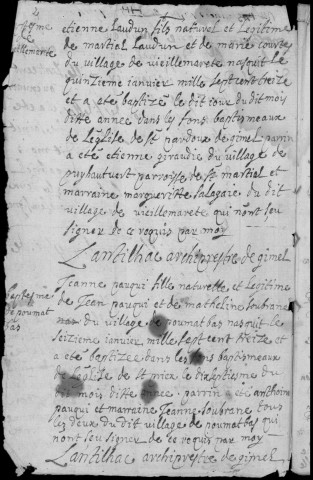 etienne Laudun fils naturel et Legitime
de martial Laudun et de marie
du village de vieillemarete nasquit le
quinzieme janvier mille sept cent treize
et a ete baptize le dit jour du dit mois
ditte annee dans les fons baptismeaux
de Leglise de st pardoux de gimel parrin
a ete etienne giraudie du village de
puyhautvert parroisse de st martial et
marraine margueritte salagaie du dit
village de vieillemarete qui nont seu
signer de ce requis par moy
Lantilhac archiprestre de gimel
baptesme
de poumat
bas
Jeanne pauqui fille naturelle et Legitime
de Jean pauqui et de matheline soubrane
du village de poumat bas nasquit le
seizieme janvier mille sept cent treize et
a ete baptizee dans les fons baptismeaux
de Leglise de st priex le dixseptiesme du
dit mois ditte annee parrin et anthoine
pauqui et marraine Jeanne soubrane tous
les deux du dit village de poumat bas qui
nont seu signer de ce requis par moy
Lantilhac archiprestre de gimel